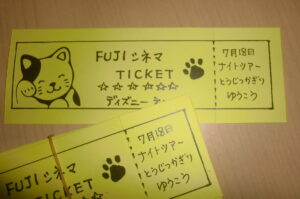 FUJIシネマ
TICKET
☆☆☆☆☆☆
ディズニー
7月18日
ナイトツアー
とうじつかぎり
ゆうこう
FUJIシネマ
TICKET
7月18日
ナイトツアー
とうじつかぎり
ゆうこう